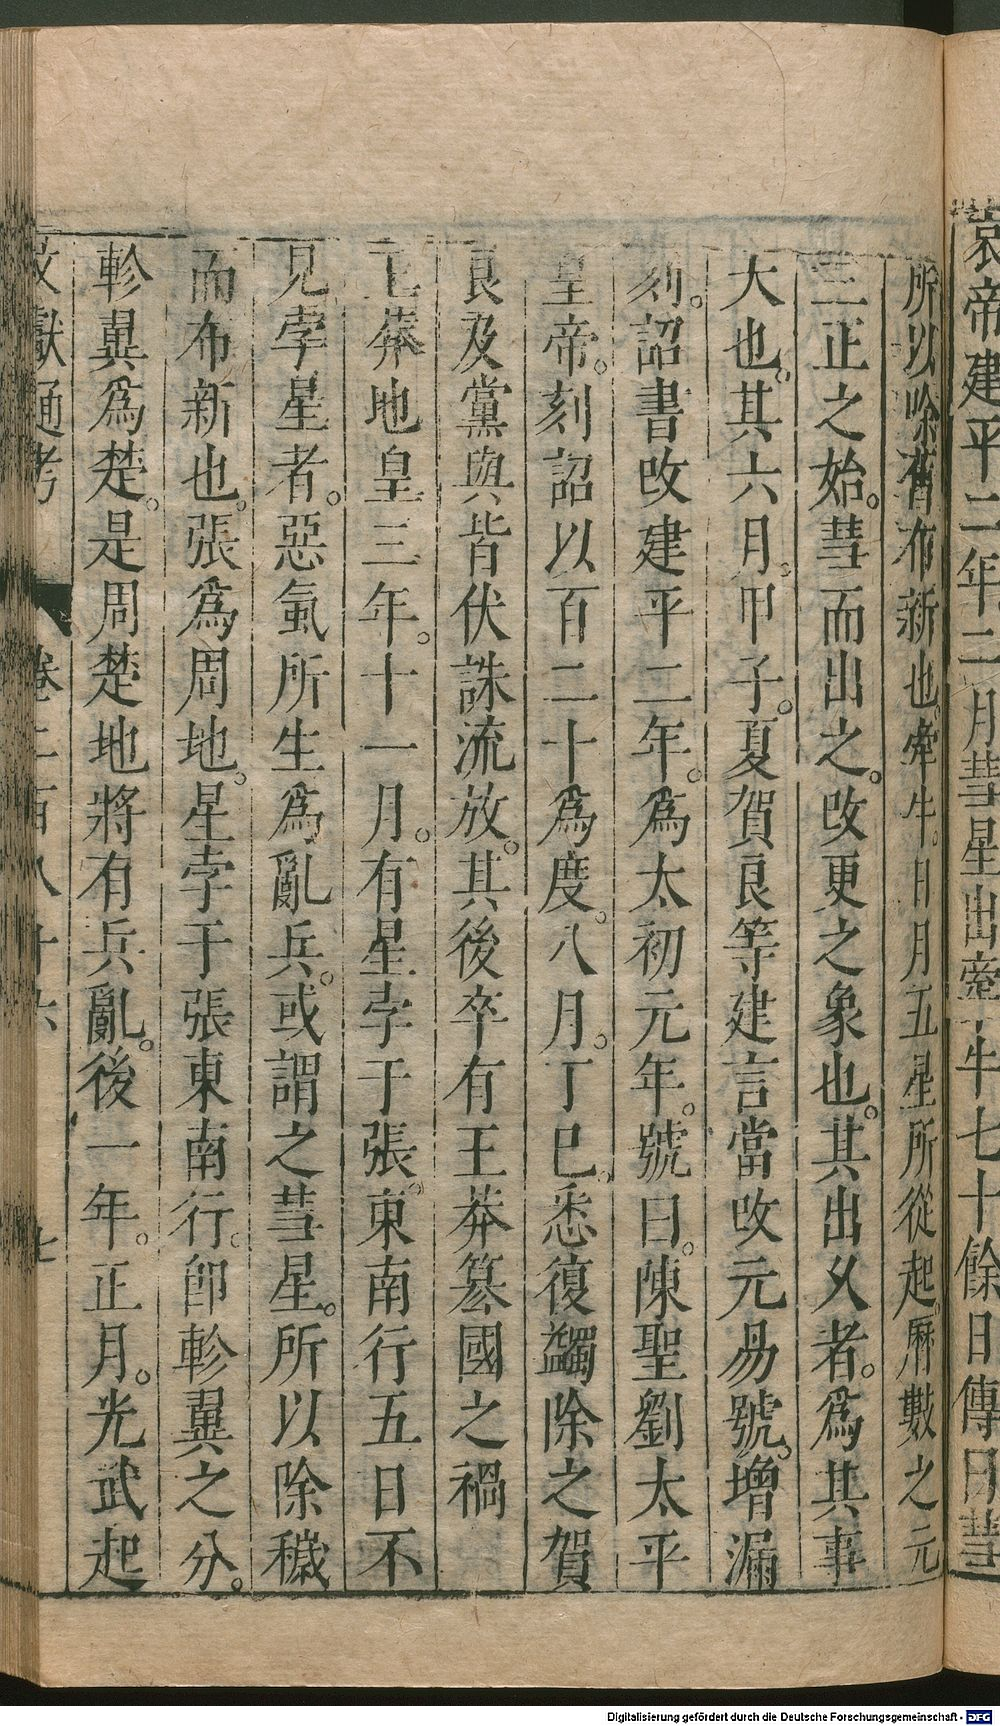 哀帝建平二年二月彗星出牽牛七十餘日傳曰彗
所以除舊布新也。牽牛。日月五星所從起。曆數之元
三正之始。彗而出之。改更之象也。其出久者。爲其事
大也。其六月。甲子。夏賀良等建言當改元易號。增漏
刻。詔書改建平二年。爲太初元年。號曰。陳聖劉太平
皇帝。刻詔以百二十爲度。八月。丁巳。悉復蠲除之賀
良及黨與皆伏誅流放。其後卒有王莽簒國之禍
王莽地皇三年。十一月。有星孛于張。東南行五日不
見孛星者。惡氣所生爲亂兵。或謂之彗星。所以除穢
而布新也。張爲周地。星孛于張東南行。卽軫翼之分。
軫翼爲楚。是周楚地將有兵亂。後一年。正月。光武起
文獻通考 卷二百八十六 七
Digitalisierung gefördert durch die Deutsche Forschungsgemeinschaft - DFG